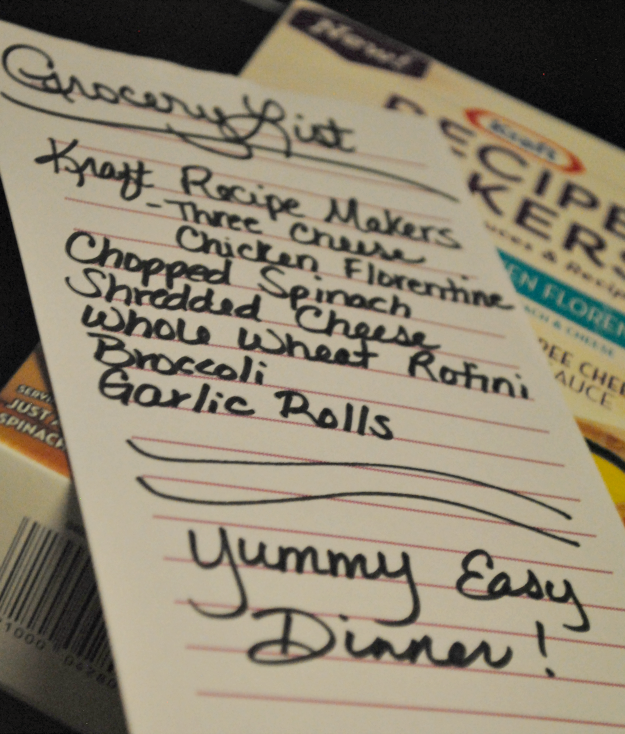 Grocery List
Kraft Recipe Makers
-Three Cheese
Chicken Florentine
Chopped Spinach
Shredded Cheese
Whole Wheat Rotini
Broccoli
Garlic Rolls
Yummy Easy
Dinner!
New!
Kraft
RECIPE
KERS
& Recip
EN FLOREN
ACH & CHEESE
REE CHEE
SAUCE
SERV
JUST
SPINACH